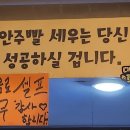 안주빨 세우는 당신
성공하실 겁니다.
셀프
감사♡
합니다